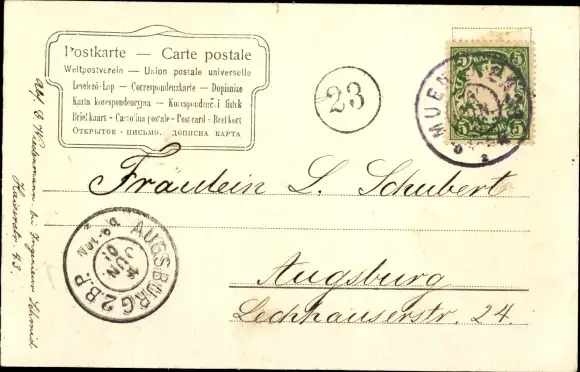 Postkarte — Carte postale
Weltpostverein — Union postale universelle
Levelező-Lap — Correspondenzkarte — Dopisnize
Karta korespondencyjna — Korespondenčni listek
Briefkaart — Cartolina postale — Post card — Brevkort
ОТКРЫТОЕ - ПИСЬМО. ДОПИСНА КАРТА
23
5
5
MUENCHEN
2
Fräulein L. Schubert
Augsburg
Lechhauserstr. 24.
AUGSBURG 2 B.P.
JUN.
01
Abs. G. Wiedenmann bei Ingenieur Schmid
Kaiserstr. 43.